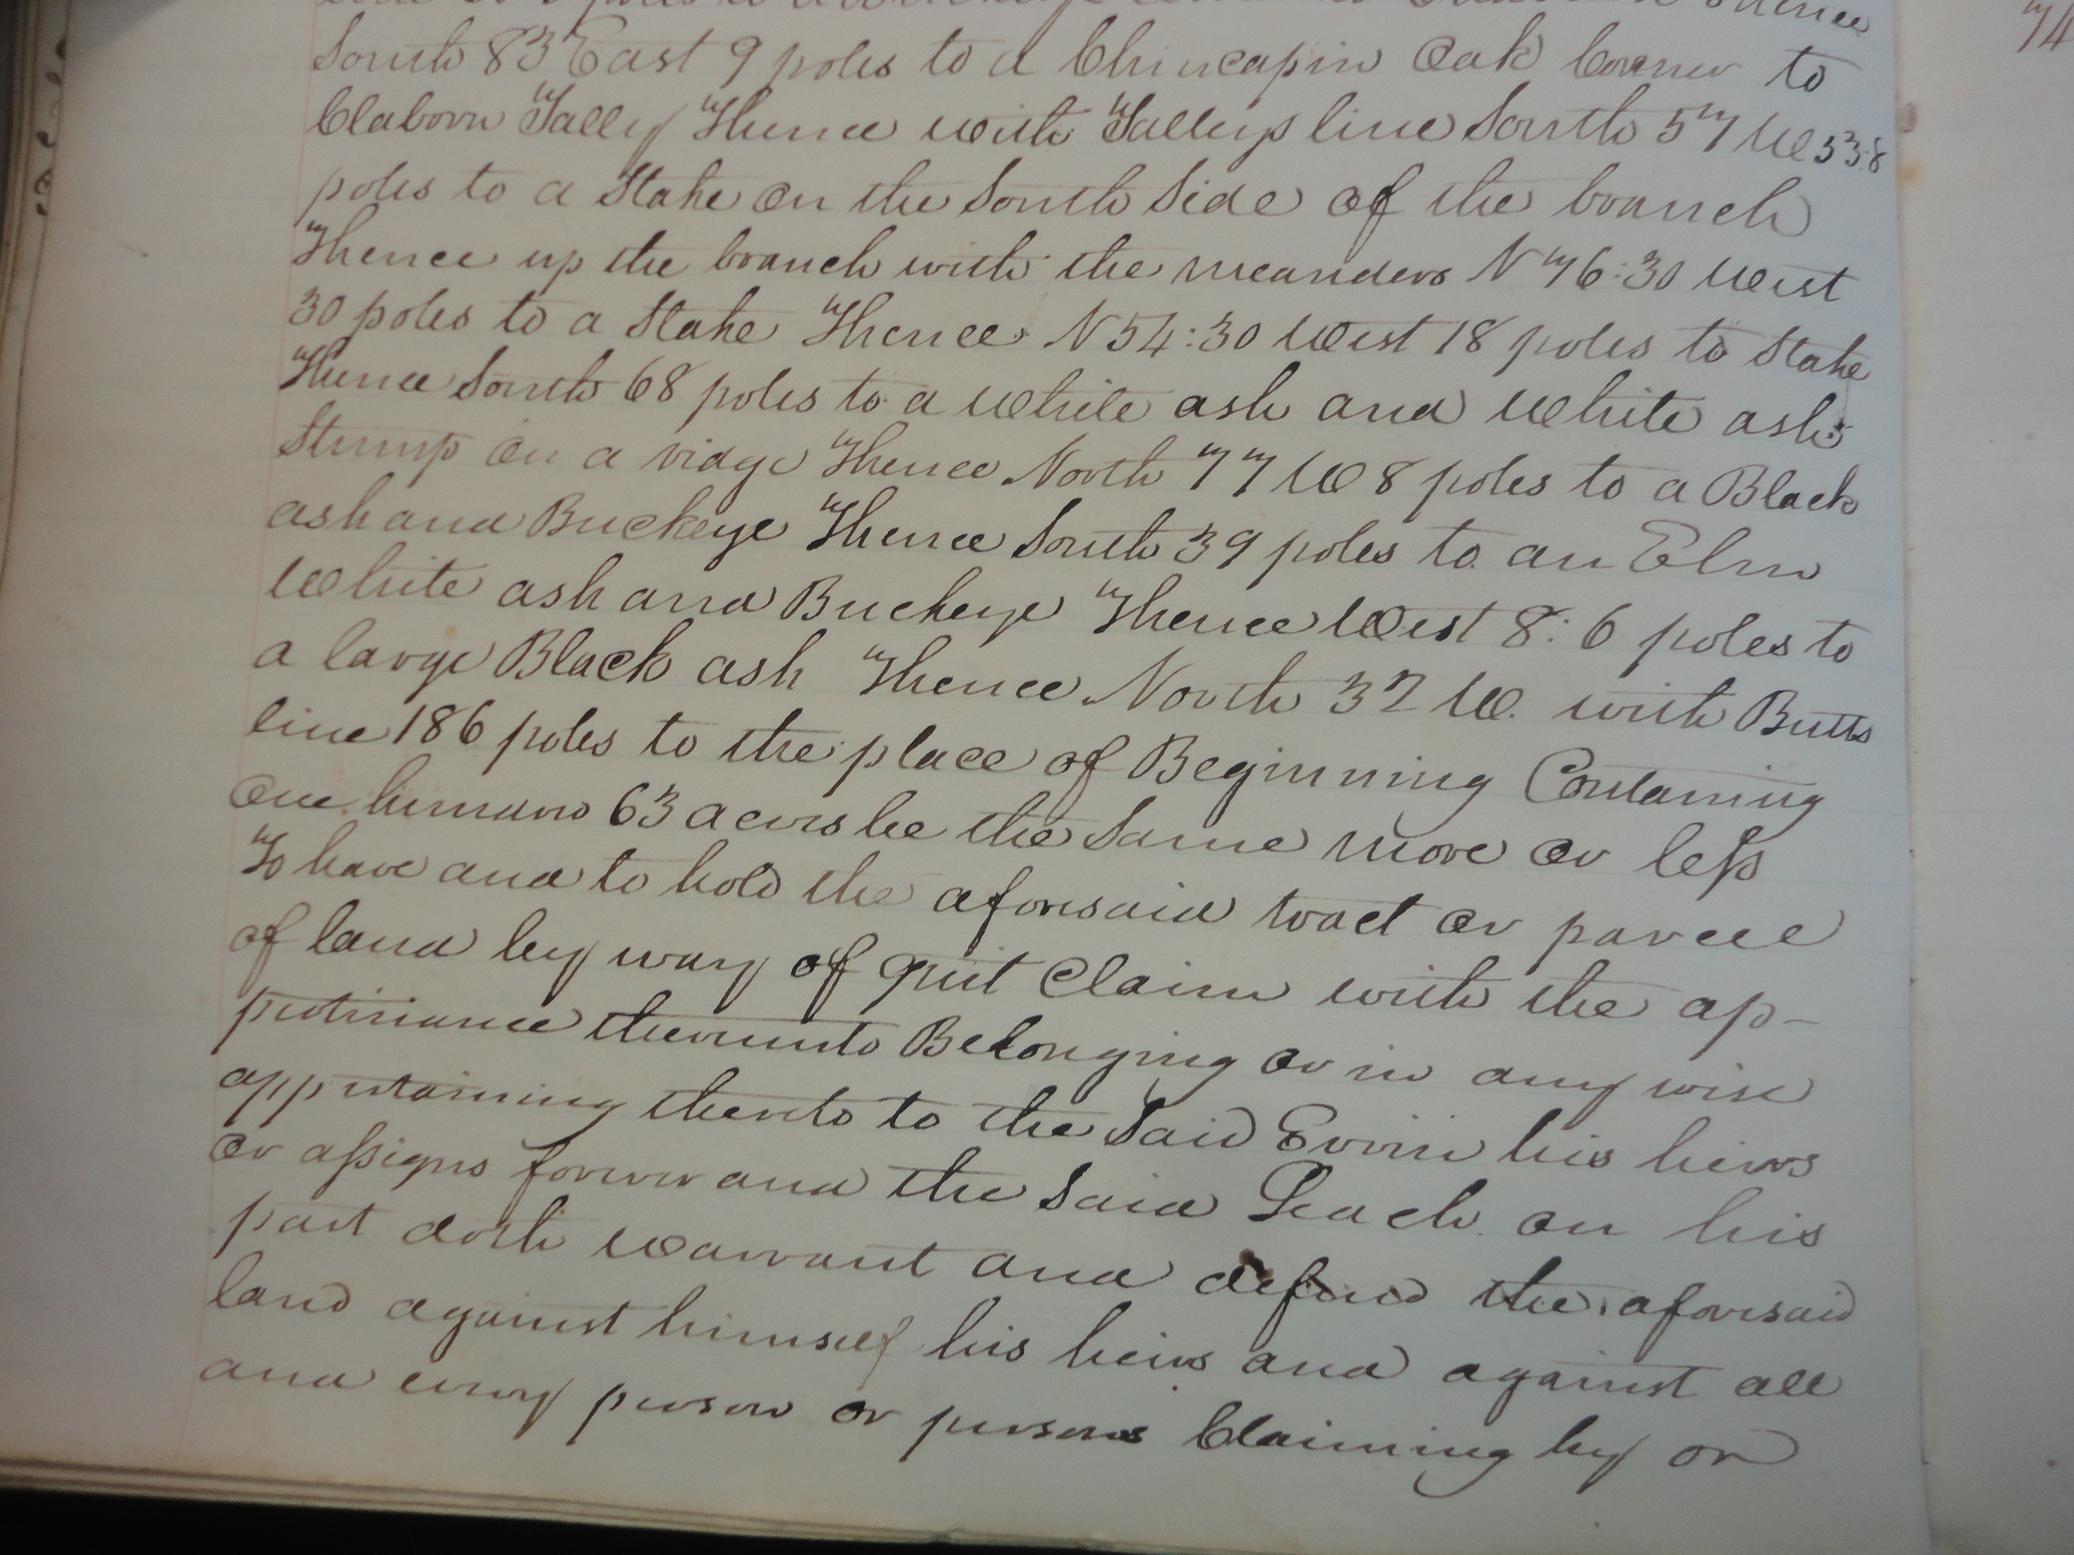 South 83 East 9 poles to a Chincapin Oak Corner to
Claborn Tally Thence with Talleys line South 57 W 53:8
poles to a Stake on the South Side of the branch
Thence up the branch with the meanders N 76:30 West
30 poles to a Stake Thence N 54:30 West 18 poles to Stake
Thence South 68 poles to a White ash and White ash
Stump on a ridge Thence North 77 W 8 poles to a Black
ash and Buckeye Thence South 39 poles to an Elm
White ash and Buckeye Thence West 8:6 poles to
a large Black ash Thence North 32 W. with Butts
line 186 poles to the place of Beginning Containing
One hundred 63 acers be the Same more or less
To have and to hold the aforesaid tract or parcel
of land by way of quit Claim with the ap-
pertinance thereunto Belonging or in any wise
appertaining thereto to the Said Ervin his heirs
or assigns forever and the Said Leach on his
part doth warrant and defend the aforesaid
land against himself his heirs and against all
and every person or persons Claiming by or
74